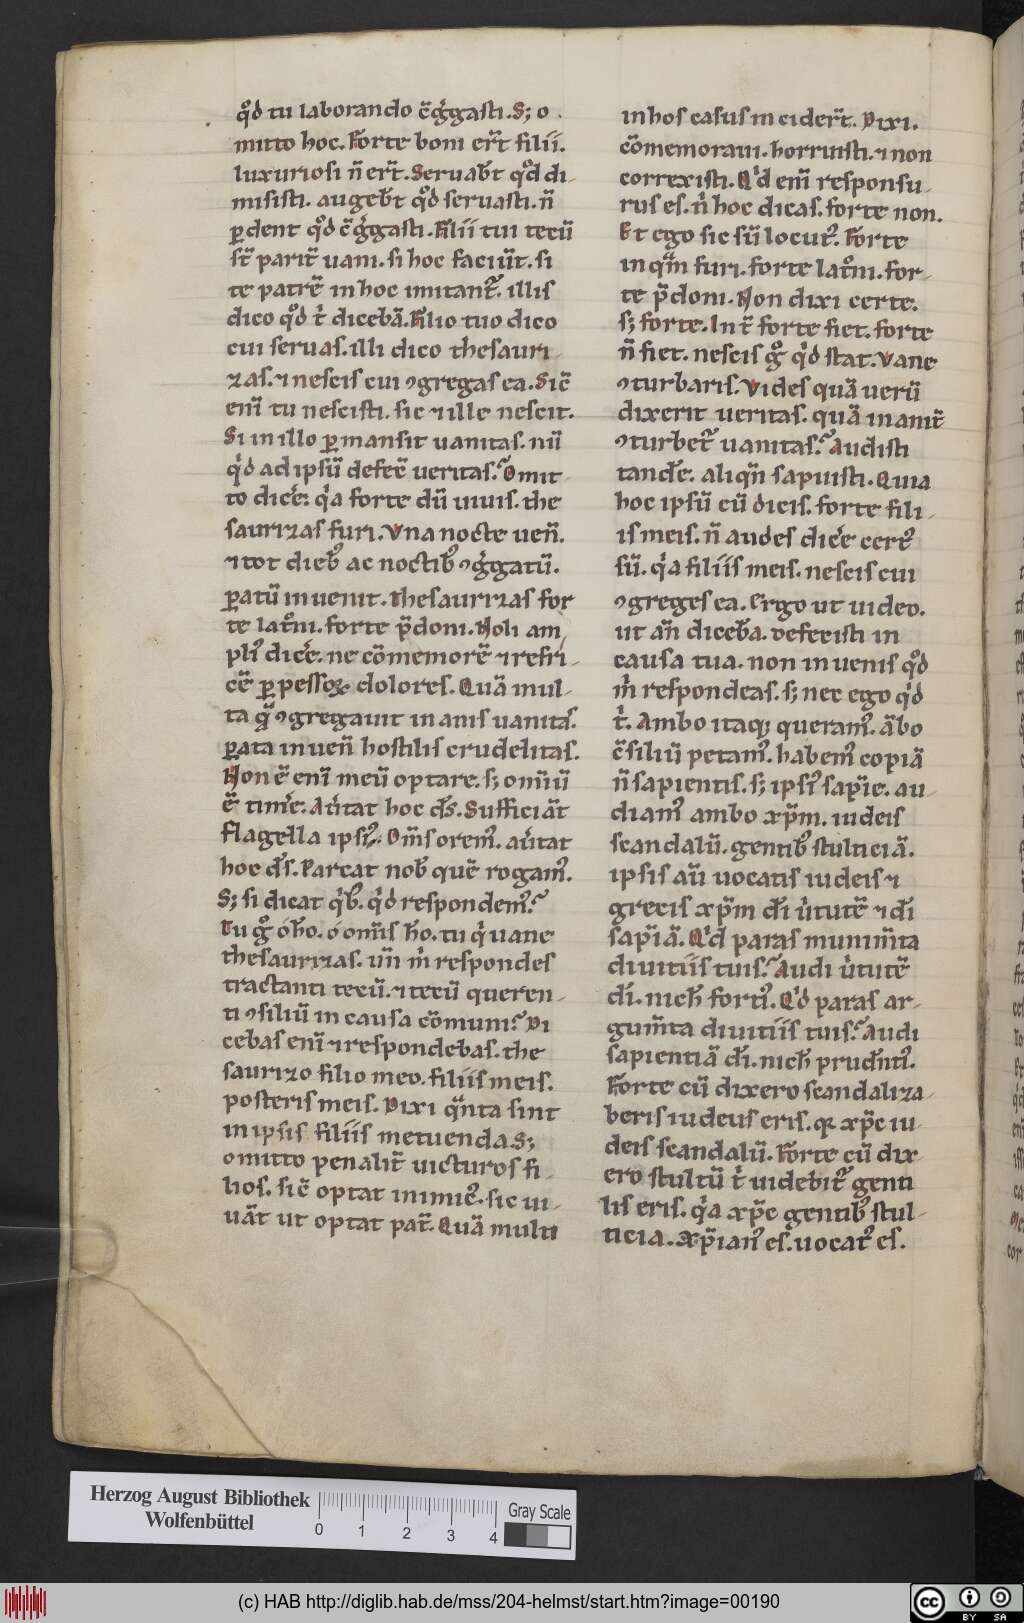 qͦd tu laborando c̄g̍gasti. S; o
mitto hoc. Forte boni er̄t filii.
luxuriosi n̄ er̄t. Seruab̄t qͦd di-
misisti. augeb̄t qͦd seruasti. n̄
ꝑdent qͦd c̄g̍gasti. Filii tui tecū
st̄ parit̄ uani. si hoc faciūt. si
te patrē in hoc imitant᷑. illis
dico qͦd t̍ dicebā. Filio tuo dico
cui seruas. illi dico thesauri-
zas. ⁊ nescis cui ꝯgregas ea. Sic̄
eni̅ tu nescisti. sic ⁊ ille nescit.
Si in illo ꝑmansit uanitas. nū
q̍d ad ipsū defec̄ ueritas.? Omit
to dic̄e. q̍a forte dū uiuis. the
saurizas furi. Vna nocte ueñ.
⁊ tot dieb᷒ ac noctib᷒ ꝯg̍gatū.
ꝑatū inuenit. Thesaurizas for
te lat̄ni. forte p̄doni. Noli am
pli᷒ dic̄e. ne cōmemorē ⁊ refri-
cē ꝑpessoꝝ dolores. Quā mul-
ta q̄ ꝯgregauit inanis uanitas.
ꝑata inueñ hostilis crudelitas.
Non ē enī meū optare. s; omiū
ē tim̄e. Au̍tat hoc d̄s. Sufficiāt
flagella ipsi᷒. Om̄s orem᷒. au̍tat
hoc d̄s. Parcat nob̄ quē rogam᷒.
S; si dicat q̍b᷒. q̍d respondem᷒.?
Tu gͦ o ho. o omīs ho. tu q̍ uane
thesaurizas. un̄ m̍ respondes
tractanti tecū. ⁊ tecū queren-
ti ꝯsiliū in causa cōmuni.? Di
cebas enī ⁊ respondebas. the
saurizo filio meo. filiis meis.
posteris meis. Dixi q̄nta sint
in ipsis filiis metuenda S;
omitto penalit̄ uicturos fi-
lios. sic̄ optat inimic᷒. sic ui-
uāt ut optat pat̄. Quā multi
in hos casus incider̄t. Dixi.
cōmemoraui. horruisti. ⁊ non
correxisti. Q̍d enī responsu-
rus es. n̍ hoc dicas. forte non.
Et ego sic sū locut᷒. Forte
in q̄m furi. forte lat̄ni. for-
te p̄doni. Non dixi certe.
s; forte. Int̄ forte fiet. forte
n̄ fiet. nescis gͦ q̍d stat. Vane
ꝯturbaris. Vides quā uerū
dixerit ueritas. quā inanit̄
ꝯturbet᷑ uanitas.? Audisti
tand̄e. aliqn̄ sapuisti. Quia
hoc ipsū cū dicis. forte fili-
is meis. n̄ audes dic̄e cert᷒
sū. q̍a filiis meis. nescis cui
ꝯgreges ea. Ergo ut uideo.
ut an̄ diceb̄a. defecisti in
causa tua. non inuenis qͦd
m̍ respondeas. s; nec ego q̍d
t̍. Ambo itaq; queram᷒. ābo
c̄siliū petam᷒. habem᷒ copiā
n̄ sapientis. s; ipsi᷒ sapīe. au-
diam᷒ ambo xp̄m. iudeis
scandalū. gentib᷒ stulticiā.
ipsis aū uocatis iudeis ⁊
grecis xp̄m d̄i u̍tutē ⁊ d̄i
sapīā. Q̍d paras munim̄ta
diuitiis tuis.? Audi u̍tutē
d̄i. nich̄ forti᷒. Q̍d paras ar-
gum̄ta diuitiis tuis.? Audi
sapientiā d̄i. nich̄ prud̄nti᷒.
Forte cū dixero scandaliza-
beris iudeus eris. qꝛ xp̄c iu-
deis scandalū. Forte cū dix-
ero stultū t̍ uidebit᷑ genti
lis eris. q̍a xp̄c gentib᷒ stul-
ticia. xp̄ian᷒ es. uocat᷒ es.
Herzog August Bibliothek
Wolfenbüttel
0 1 2 3 4
Gray Scale
(c) HAB http://diglib.hab.de/mss/204-helmst/start.htm?image=00190
cc BY SA